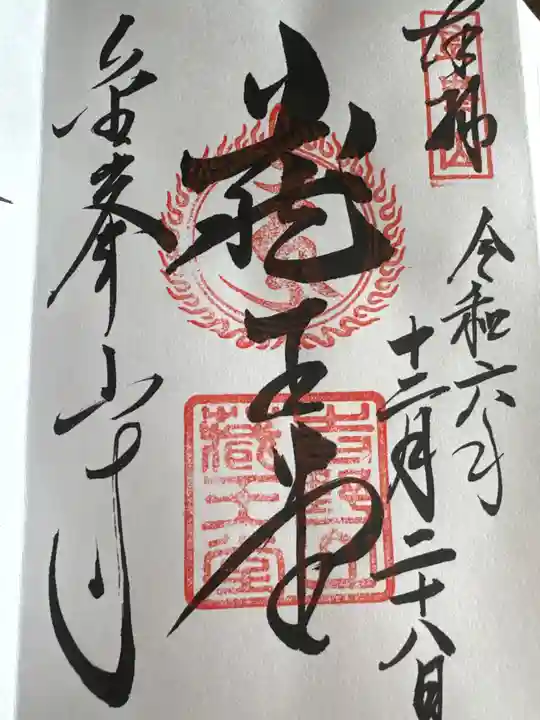 奉拝
令和六年
十二月二十八日
蔵王堂
吉野山
藏王堂
金峯山寺